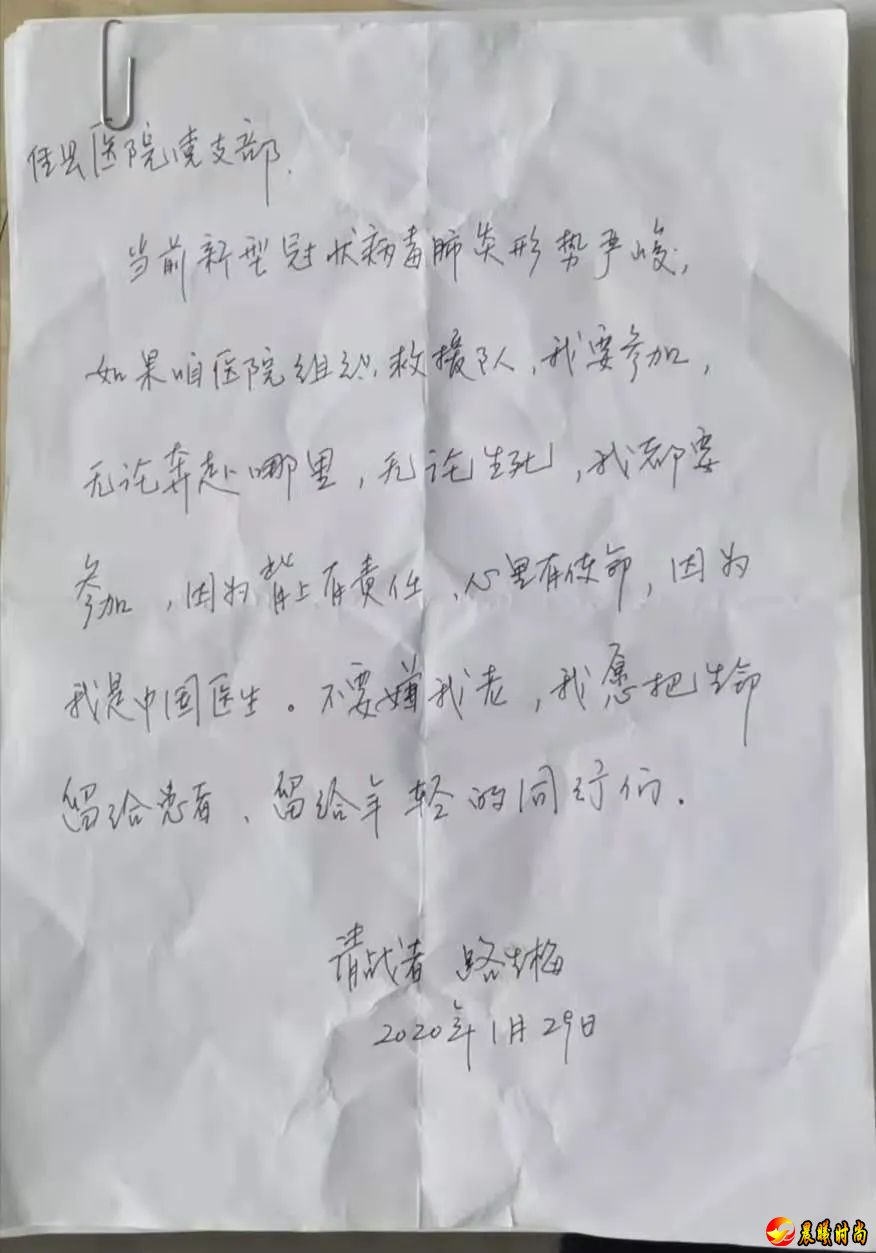 佳县医院党支部.
当前新型冠状病毒肺炎形势严峻,
如果咱医院组织救援队,我要参加,
无论奔赴哪里,无论生死,我都要
参加,因为背上有责任、心里有使命,因为
我是中国医生。不要嫌我老,我愿把生命
留给患者、留给年轻的同行们.
请战者 路生梅
2020年1月29日
晨曦时尚